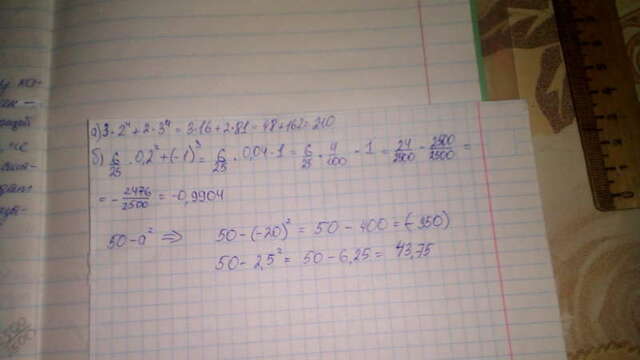 а) 3·2⁴+2·3⁴= 3·16+2·81= 48+162= 210
б) 6/25 · 0,2²+(-1)³= 6/25 · 0,04-1= 6/25 · 4/100 - 1 = 24/2500 - 2500/2500 =
= - 2476/2500 = -0,9904
50-a² ⇒ 50-(-20)² = 50-400=(-350)
50-2,5² = 50-6,25= 43,75